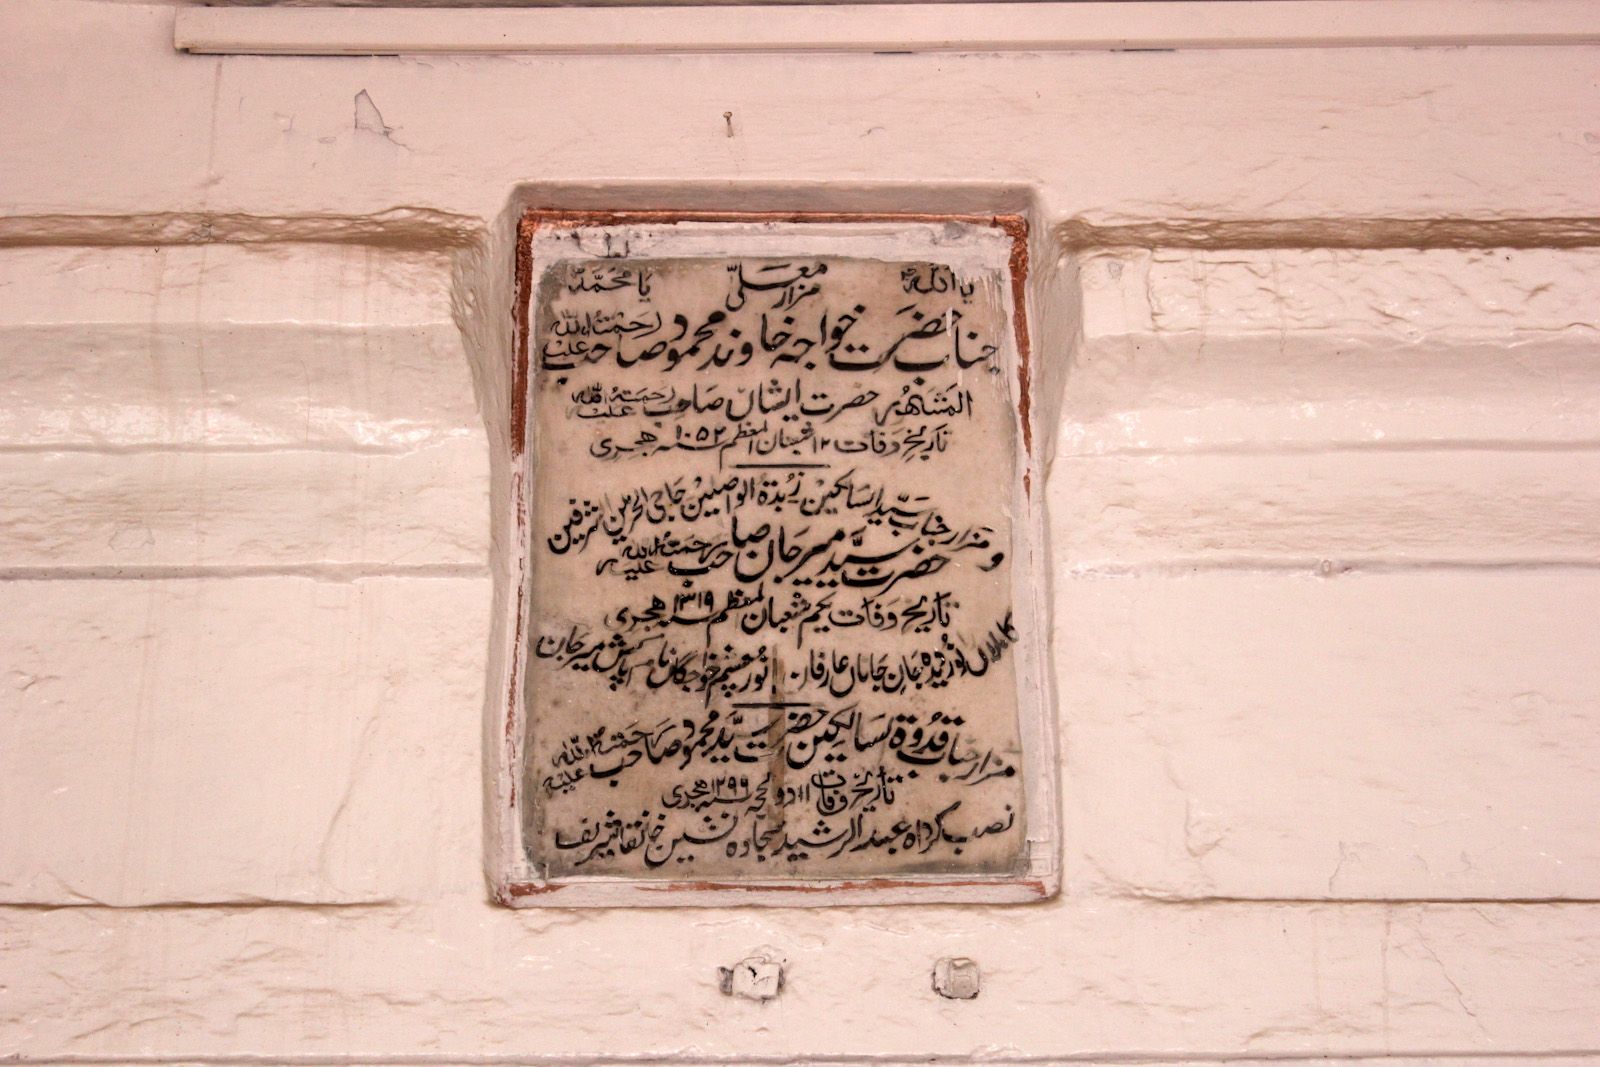 یا اللہ مزار معلیٰ یا محمدؐ
جناب حضرت خواجہ خاوند محمود صاحب رحمتہ اللہ علیہ
المشہور حضرت ایشاں صاحب رحمتہ اللہ علیہ
تاریخ وفات ۱۲ شعبان المعظم سنہ ۱۰۵۲ ہجری
و مزار جناب سید السالکین زبدۃ الواصلین حاجی الحرمین الشرفین
حضرت سید میر جان صاحب رحمتہ اللہ علیہ
تاریخ وفات یکم شعبان المعظم سنہ ۱۳۱۹ ہجری
جان جاناں عارفاں نور چشم خواجگاں نام پاکش میر جان
مزار جناب قدوۃ السالکین حضرت سید محمود صاحب رحمتہ اللہ علیہ
تاریخ وفات ۱۱ ذوالحجہ سنہ ۱۲۹۹ ہجری
نصب کردہ عبد الرشید سجادہ نشین خانقاہ شریف